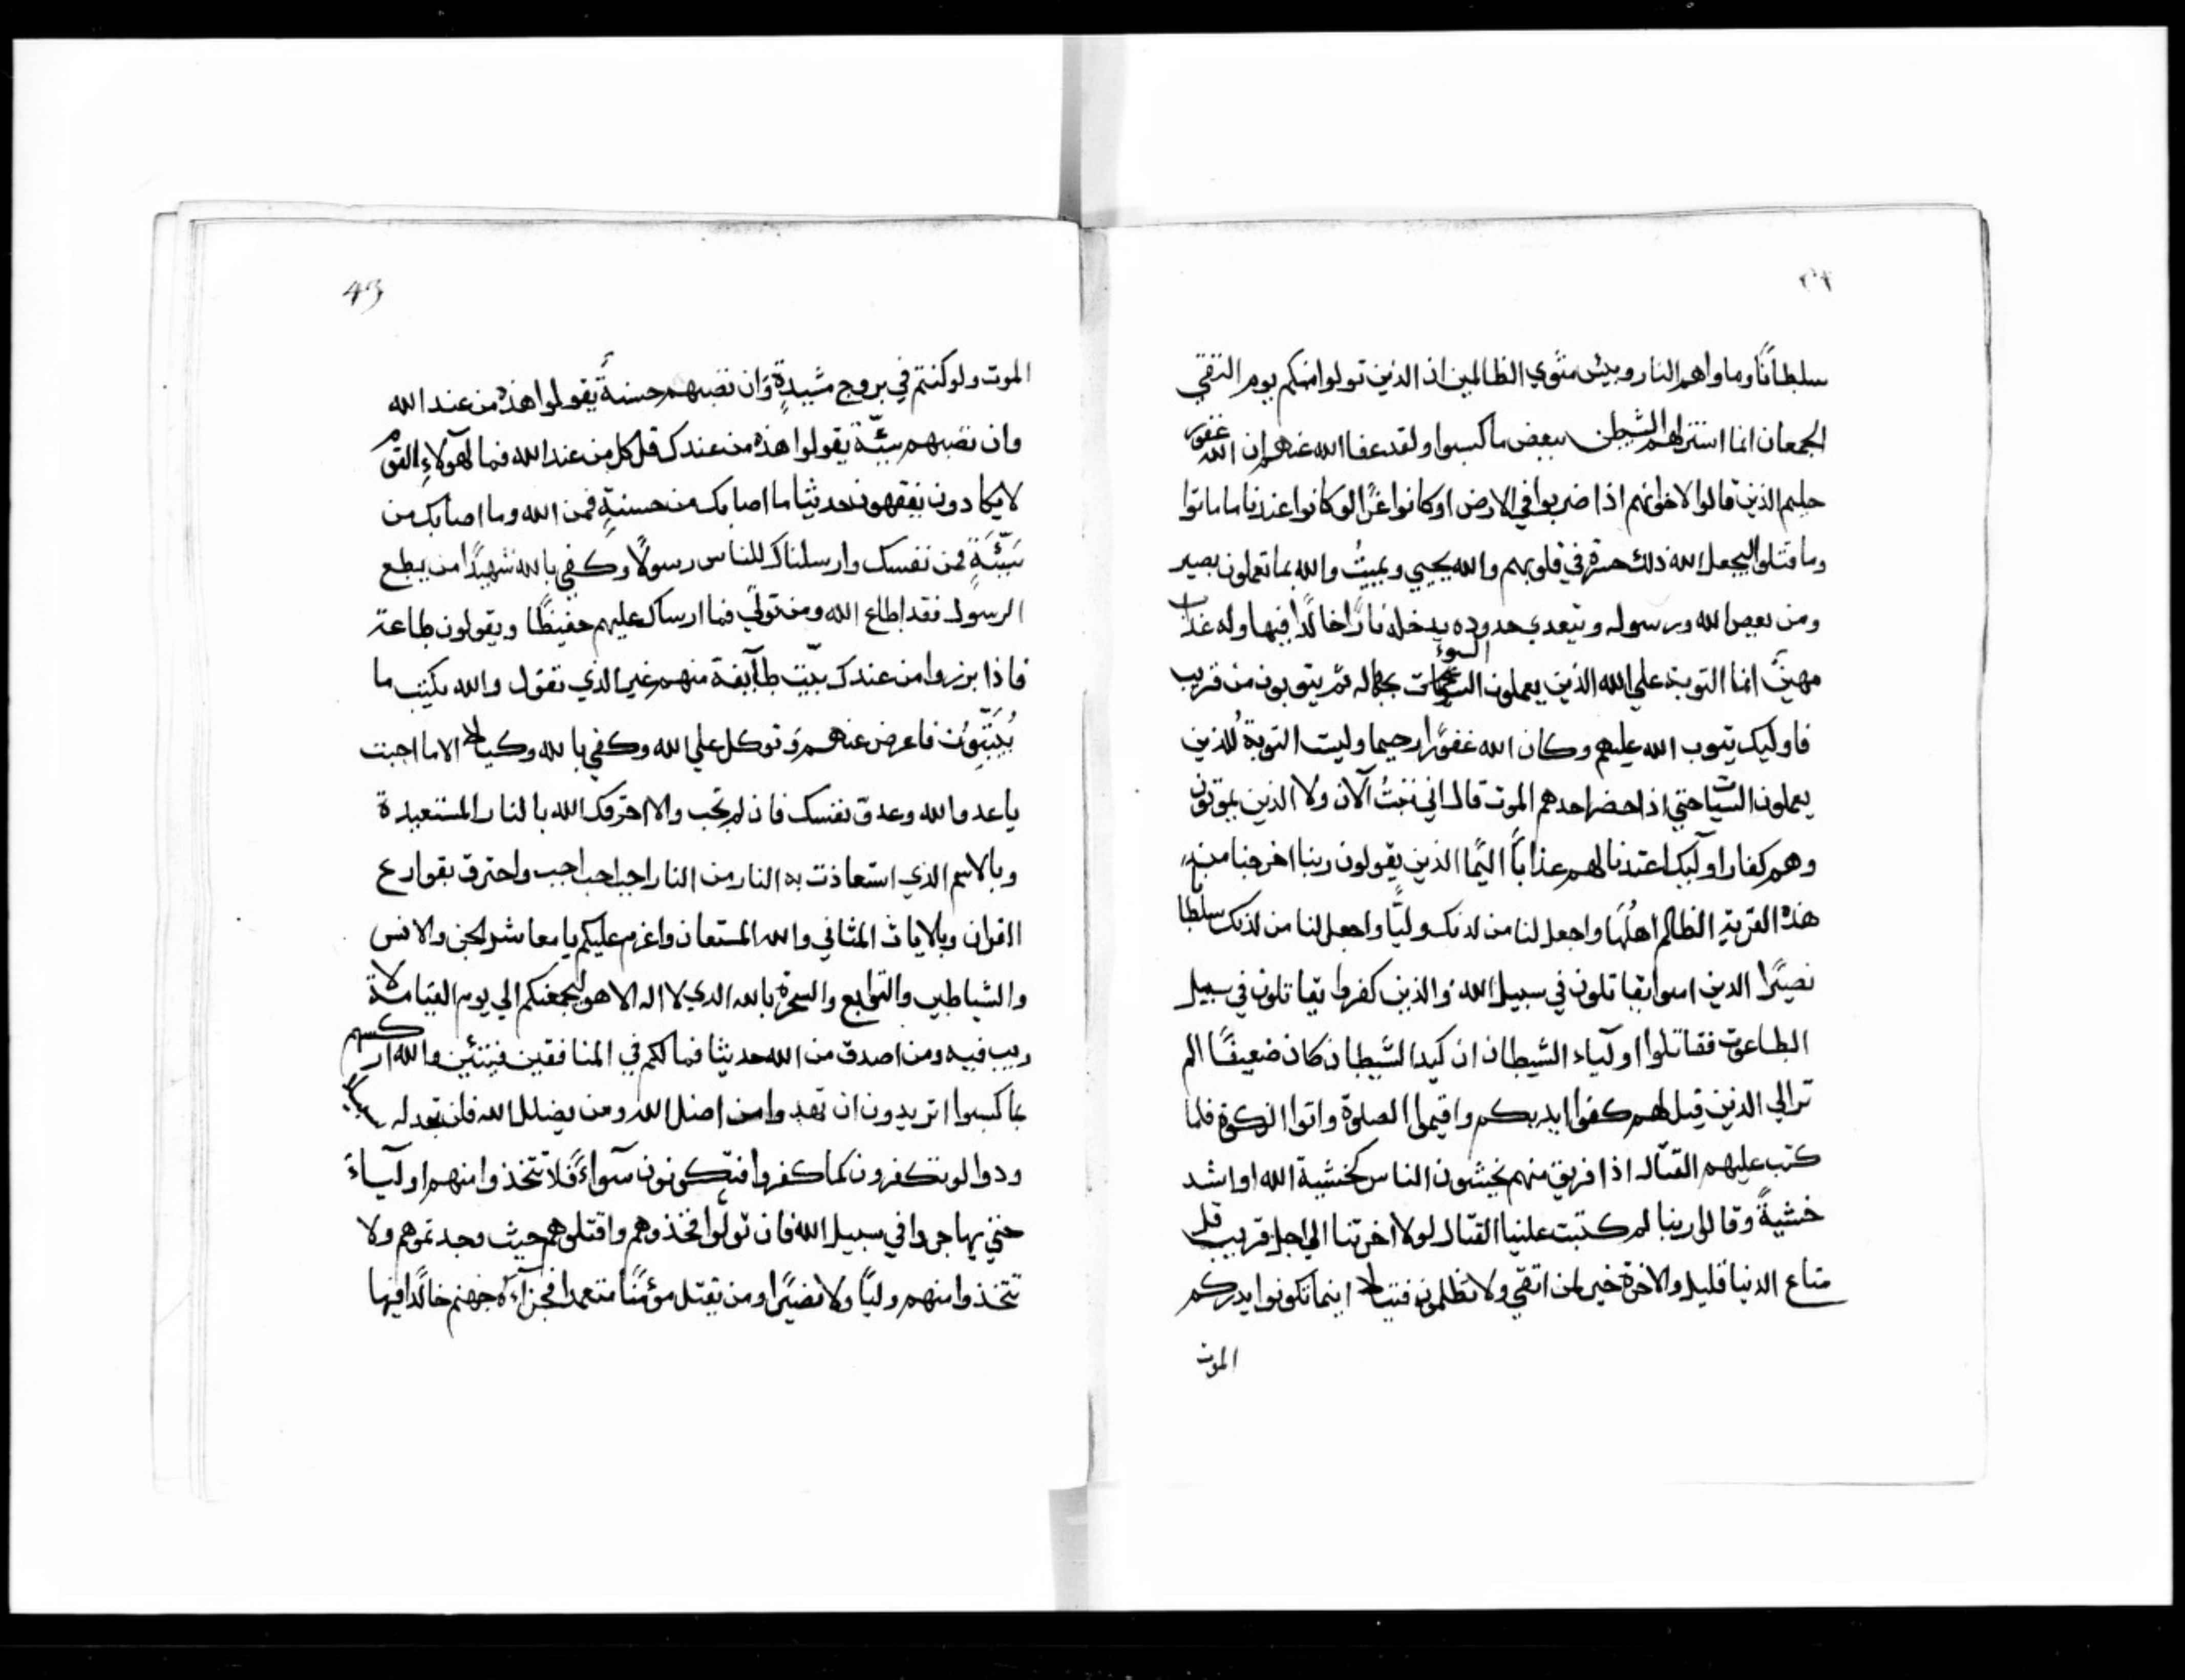 ٣٩
سلطانًا وماواهم النار وبيس مثوي الظالمين اذ الذين تولوا منكم يوم التقي
الجمعان انما استزلهم الشيطن ببعض ما كسبوا ولقد عفا الله عنهم ان الله غفور
حليم الذين قالوا لاخوانهم اذا ضربوا في الارض او كانوا غزًا لو كانوا عندنا ما ماتوا
وما قتلوا ليجعل الله ذلك حسرة في قلوبهم والله يحيي ويميتُ والله بما تعملون بصير
ومن يعص الله ورسوله ويتعدي حدوده يدخله نارًا خالدًا فيها وله عذاب
مهينٌ انما التوبة علي الله الذين يعملون السوء بجهاله ثم يتوبون من قريب
فاوليك يتوب الله عليهم وكان الله غفورًا رحيما وليست التوبة للذين
يعملون السيات حتي اذا حضر احدهم الموت قال اني تبتُ الآن ولا الذين يموتون
وهم كفار اولٓيك اعتدنا لهم عذابًا اليمًا الذين يقولون ربنا اخرجنا من
هذه القرية الظالم اهلُهَا واجعل لنا من لدنك وليًّا واجعل لنا من لدنك سلطانا
نصيرًا الدين امنوا يقاتلون في سبيل الله والذين كفروا يقاتلون في سبيل
الطاعوت فقاتلوا اولٓياء الشيطان ان كيد الشيطان كان ضعيفًا الم
تر الي الذين قيل لهم كفوا ايديكم واقيموا الصلوة واتوا الزكوة فلما
كتب عليهم القتال اذا فريق منهم يخشون الناس كخشية الله او اشد
خشيةً وقالوا ربنا لم كتبت علينا القتال لولا اخرتنا الي اجل قريب قل
متاع الدنيا قليل والاخرة خير لمن اتقي ولا تظلمون فتيلا اينما تكونوا يدرككم
الموت
43
الموت ولو كنتم في بروج مشيدةٍ وان تصبهم حسنةً يقولوا هذه من عند الله
وان تصبهم سيّئة يقولوا هذه من عندك قل كل من عند الله فما لهٓولاءِ القوم
لا يكادون يفقهون حديثا ما اصابك من حسنةٍ فمن الله وما اصابك من
سَيّئَةٍ فمن نفسك وارسلناك للناس رسولًا وكفي بالله شهيدًا من يطع
الرسول فقد اطاع الله ومن تولي فما ارسلناك عليهم حفيظًا ويقولون طاعة
فاذا برزوا من عندك بيّت طآئفة منهم غير الذي تقول والله يكتب ما
يُبَيّتُونَ فاعرض عنهم وتوكل علي الله وكفي بالله وكيلا الا ما اجبت
ياعدو الله وعدو نفسك فان لم تجب والا احرقك الله بالنار المستعبدة
وبالاسم الذي استعاذت به النار من النار اجب اجب اجب واحترق بقوارع
القران وبالايات المثاني والله المستعان واعزم عليكم يا معاشر الجن والانس
والشياطين والتوابع والسحرة بالله الدي لا اله الا هو ليجمعنكم الي يوم القيامة لا
ريب فيه ومن اصدق من الله حديثا فمالكم في المنافقين فيئتين والله اركسهم
بما كسبوا اتريدون ان تهدوا من اضل الله ومن يضلل الله فلن تجد له سبيلًا
ودوا لو تكفرون كما كفروا فتكونون سٓواءً فلا تتخذوا منهم اولٓياءَ
حتي يهاجروا في سبيل الله فان تولّوا فخذوهم واقتلوهم حيث وجدتموهم ولا
تتخذوا منهم وليًّا ولا نصيرًا ومن يقتل مؤمنًا متعمدا فجزآءه جهنم خالدًا فيها